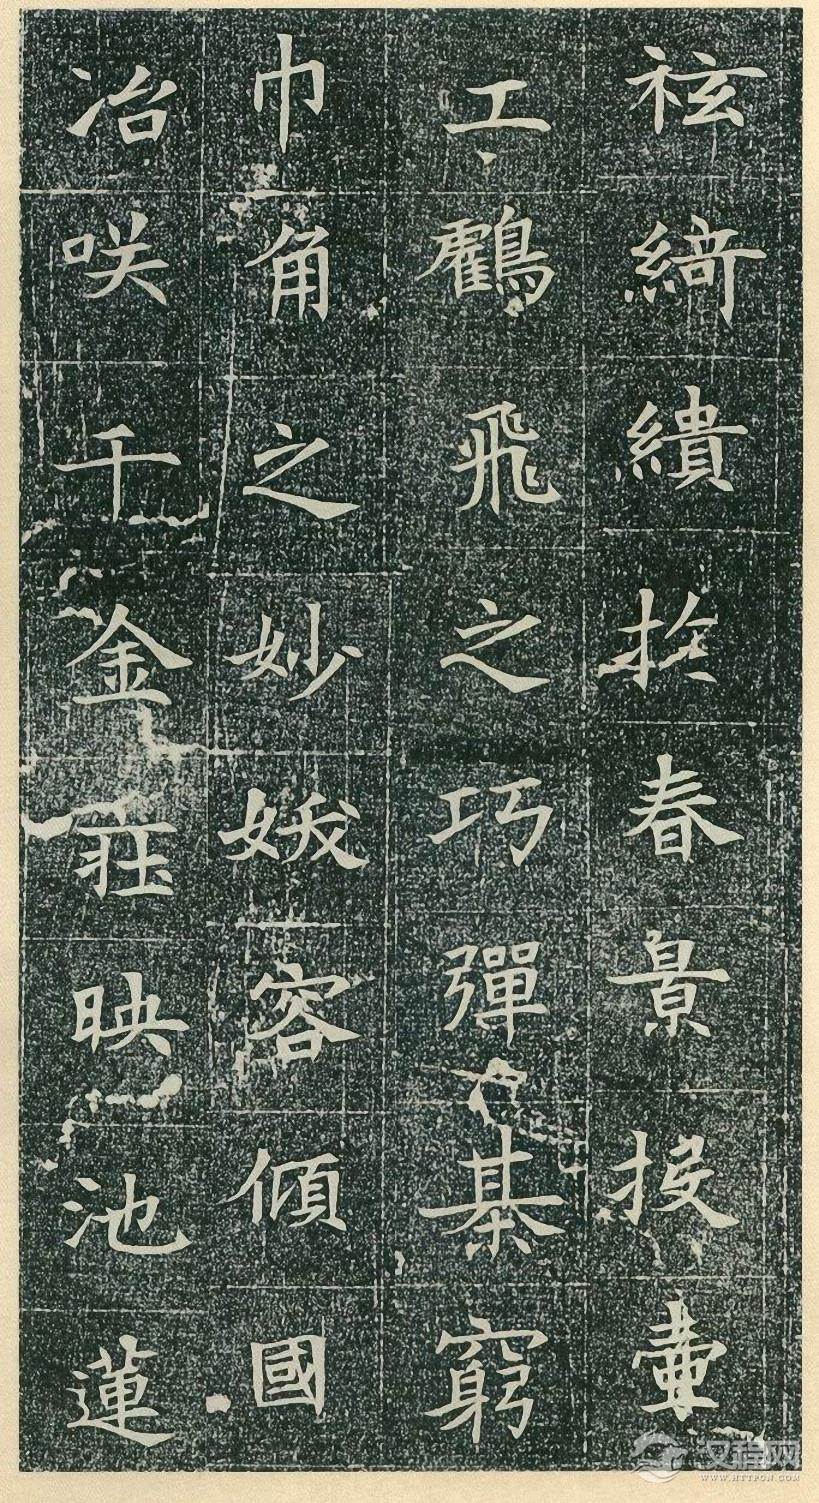 袨綺繢扵春景投壷
工鸖飛之巧彈棊窮
巾角之妙妖容傾國
冶咲千金莊映池蓮
汉程网
WWW.HTTPCN.COM